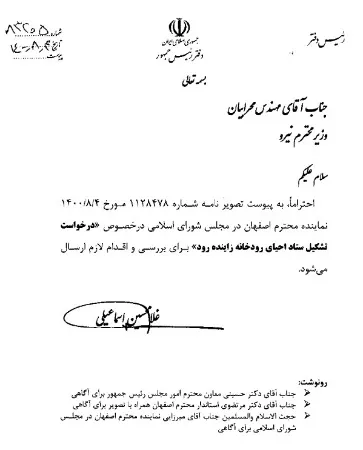 رئیس دفتر
جمهوری اسلامی ایران
دفتر رئیس جمهور
شماره ۸۳۲۰۵
تاریخ
پیوست
بسمه تعالی
جناب آقای مهندس محرابیان
وزیر محترم نیرو
سلام علیکم
احتراماً، به پیوست تصویر نامه شماره ۱۱۲۸۴۷۸ مورخ ۱۴۰۰/۸/۴
نماینده محترم اصفهان در مجلس شورای اسلامی درخصوص «درخواست
تشکیل ستاد احیای رودخانه زاینده رود» برای بررسی و اقدام لازم ارسال
می‌شود.
غلامحسین اسماعیلی
رونوشت:
➢ جناب آقای دکتر حسینی معاون محترم امور مجلس رئیس جمهور برای آگاهی
➢ جناب آقای دکتر مرتضوی استاندار محترم اصفهان همراه با تصویر برای آگاهی
➢ حجت الاسلام والمسلمین جناب آقای میرزایی نماینده محترم اصفهان در مجلس
شورای اسلامی برای آگاهی